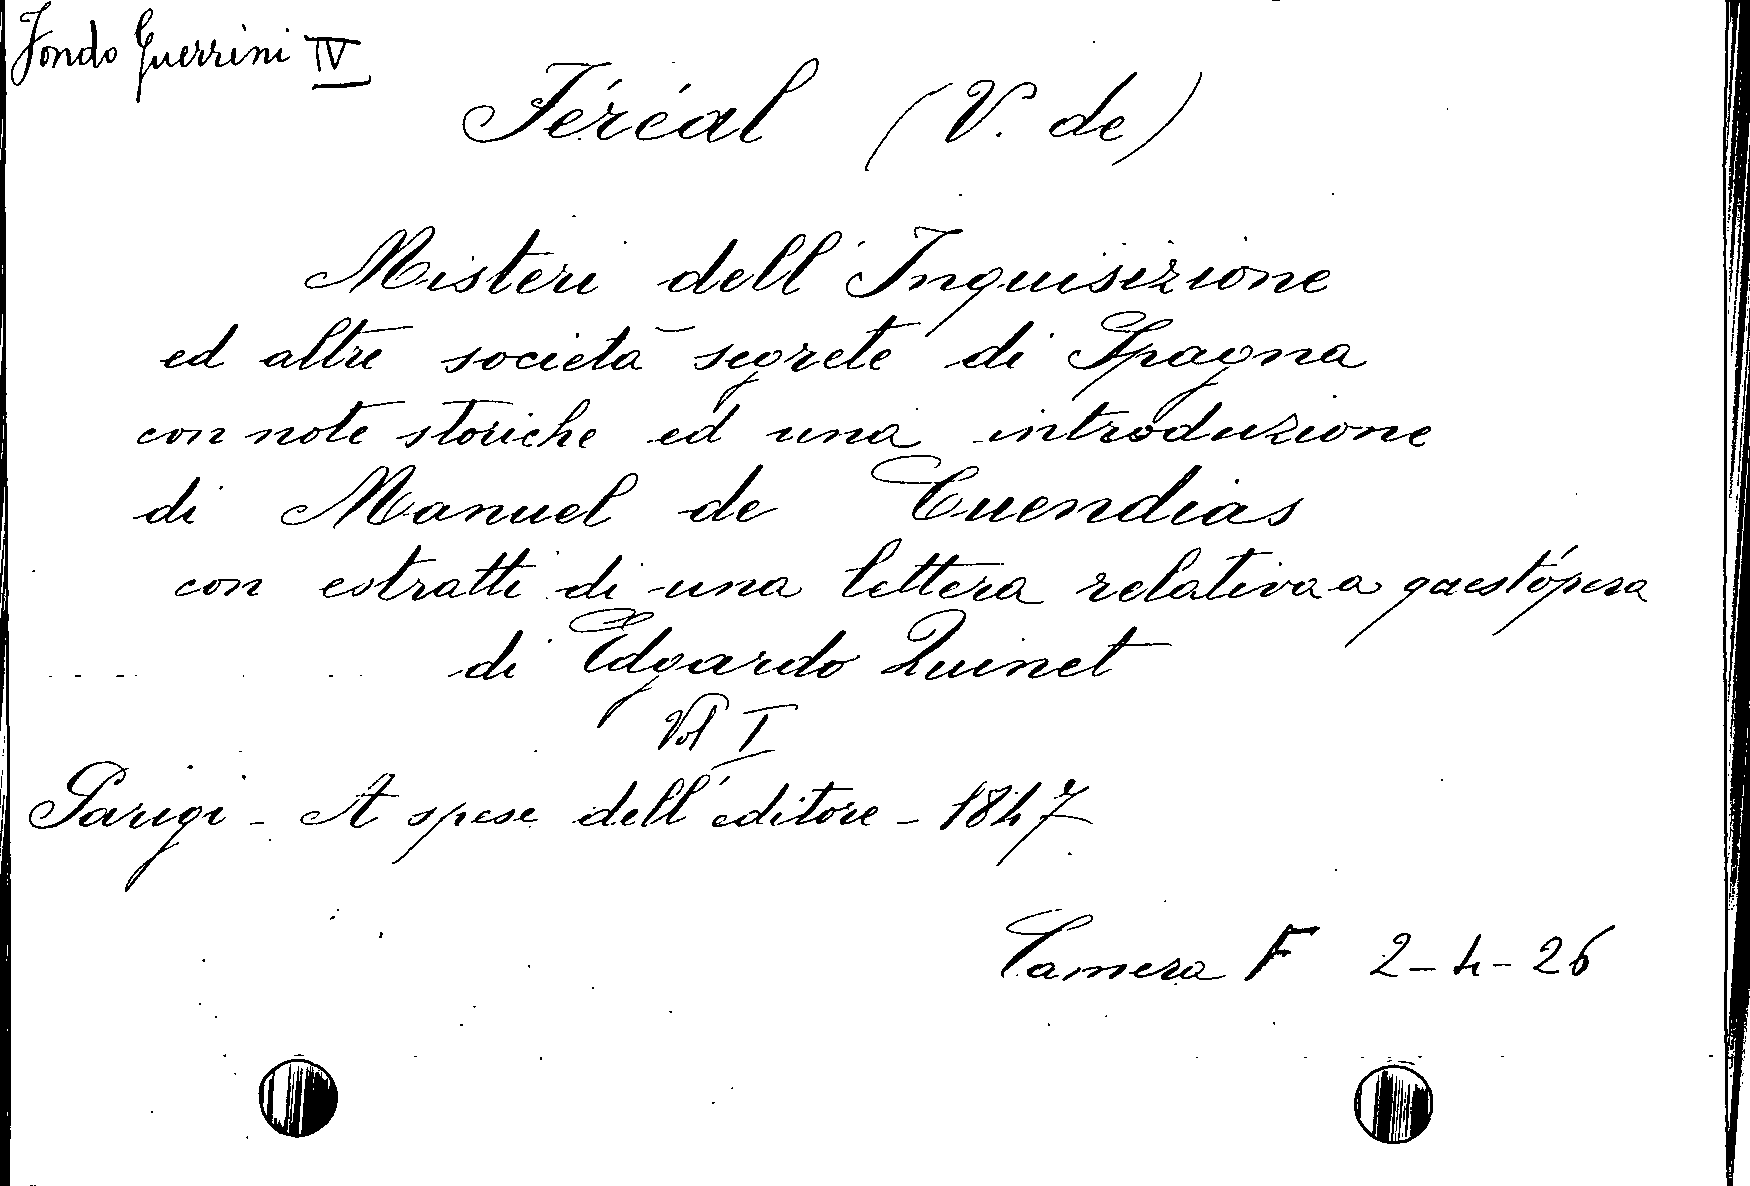 Fondo Guerrini IV
Féréal (V. de)
Misteri dell'Inquisizione
ed altre società segrete di Spagna
con note storiche ed una introduzione
di Manuel de Cuendias
con estratti di una lettera relativa a quest'opera
di Edgardo Quinet
Vol I
Parigi - A spese dell'editore - 1847
Camera F 2-4-26